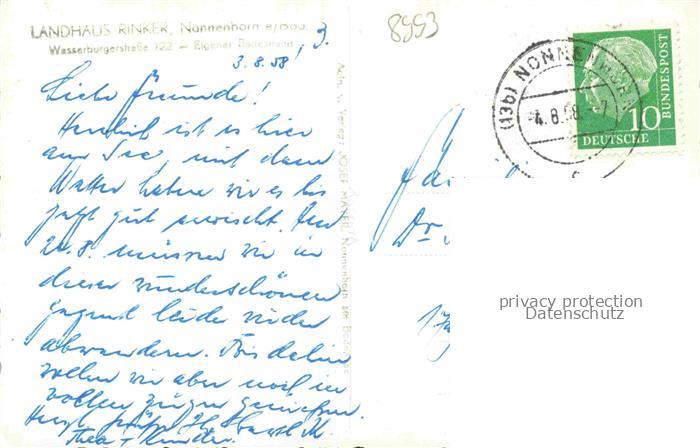 LANDHAUS RINKER, Nonnenhorn a/Bod.
Wasserburgerstraße 122 - Eigener Badestrand
3.8.58
Liebe Freunde!
Herrlich ist es hier
am See, mit dem
Wetter haben wir es bis
jetzt gut erwischt. Am
20.8. müssen wir in
dieser wunderschönen
Gegend leider wieder
abwandern. Bis dahin
wollen wir aber noch in
vollen Zügen genießen.
Herzl. Grüße
Thea + Kinder.
Verlag: JOSEF MAYER, Nonnenhorn am Bodensee
8993
(13b) NONNENHORN
4.8.58
10
DEUTSCHE
BUNDESPOST
Dr.
privacy protection
Datenschutz